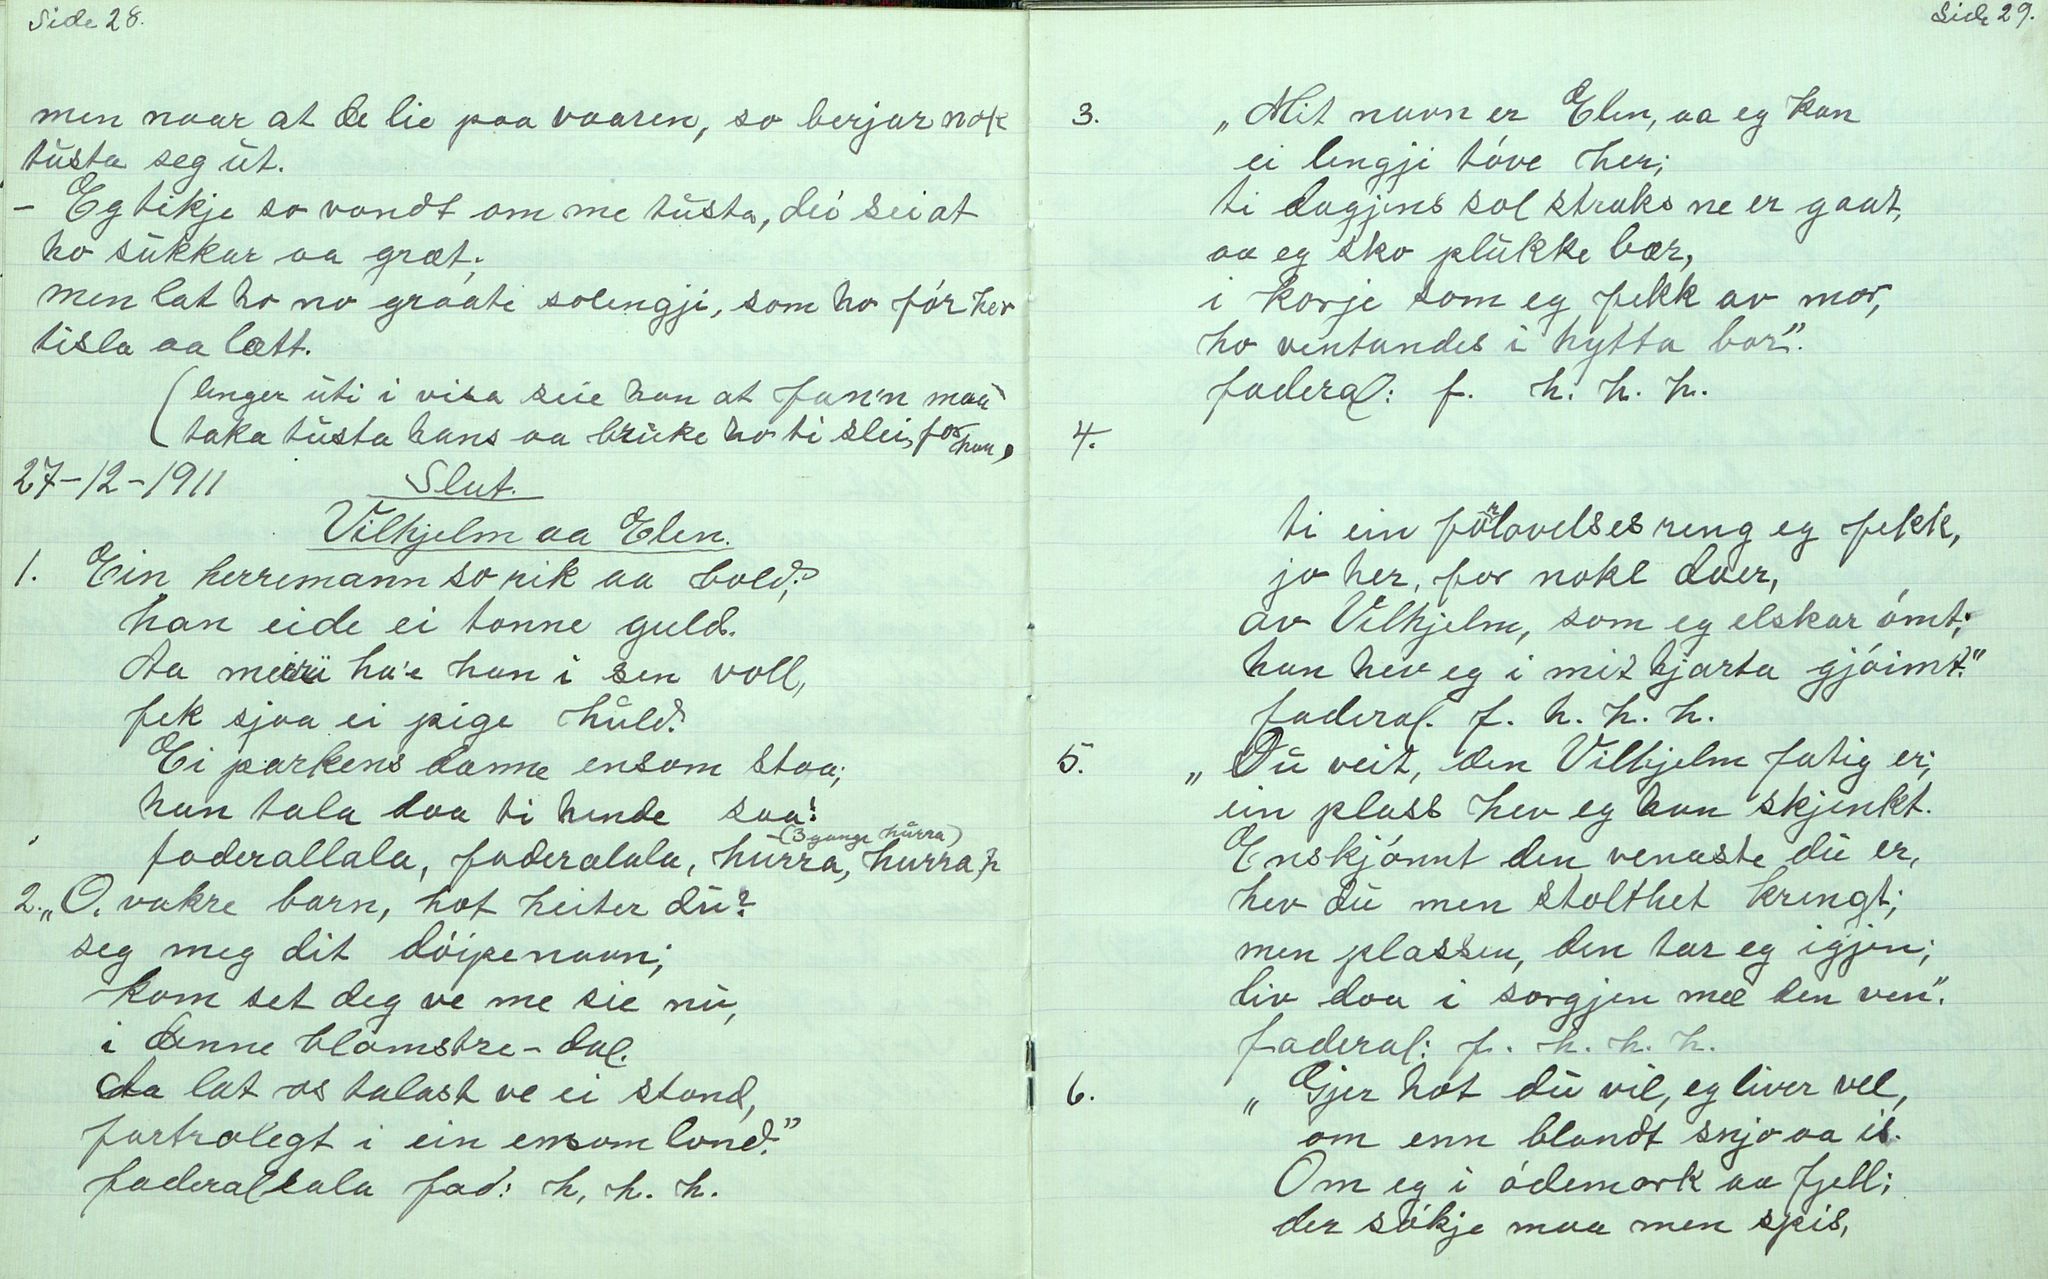 Side 28.
men naar at de lie paa vaaren, so berjar nok
tústa seg út.
- Eg tikje so vondt om me tústa, dei sei at
ho súkkar aa græt;
men lat ho no graate solengji, som ho fór hev
tisla aa lætt.
(lenger úti i visa seie han at Fan'n maa
taka tústa hans aa brúke ho ti slei, for han,
27-12-1911 Slut.
Vilhjelm aa Elen.
1. Ein herremann so rik aa bold;
han eide ei tonne guld.
Aa ha'e han i sen voll,
fek sjaa ei pige húld.
Ei parkens danne ensom staa;
han tala daa ti hende saa:
(3 gange húrra)
faderallala, faderalala, hurra, hurra, h
2. „O, vakre barn, hot heiter dú?
seg meg dit dóipenavn;
kom set deg ve me sie nú,
i denne blomstre-dal.
Aa lat os talast ve ei stond,
fortrolegt i ein ensom lond."
faderallala fad: h, h. h.
Side 29.
3. „Mit navn er Elen, aa eg kan
ei lengji tóve her;
ti dagjens sol straks ne er gaat,
aa eg sko plúkke bær,
i korje som eg fekk av mor,
ho ventandes i hytta bor".
faderal: f. h. h. h.
4.
ti ein fórlovelsesreng eg fekk,
jo her, for nokl daer,
av Vilhjelm, som eg elskar ómt;
han hev eg i mit hjarta gjóimt."
faderal. f. h. h. h.
5. „Dú veit, den Vilhjelm fatig er;
ein plass hev eg han skjenkt.
Enskjónnt den venaste dú er,
hev dú men stolthet krengt;
men plassen, den tar eg igjen;
liv daa i sorgjen mæ den ven".
faderal: f. h. h. h.
6. „Gjer hot dú vil, eg liver vel,
om enn blandt snjo aa is.
Om eg i ódemark aa fjell;
der sókje maa men spis,